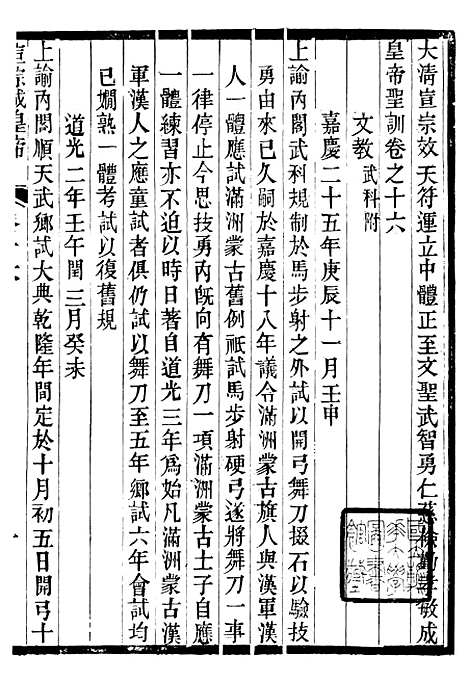 大清宣宗效天符運立中體正至文聖武智勇仁慈儉勤孝敏成
皇帝聖訓卷之十六
文教武科附
嘉慶二十五年庚辰十一月壬申
上諭內閣武科規制於馬步射之外試以開弓舞刀掇石以驗技
勇由來已久嗣於嘉慶十八年議令滿洲蒙古旗人與漢軍漢
人一體應試滿洲蒙古舊例祇試馬步射硬弓遂將舞刀一事
一律停止今思技勇內旣向有舞刀一項滿洲蒙古士子自應
一體練習亦不迫以時日著自道光三年爲始凡滿洲蒙古漢
軍漢人之應童試者俱仍試以舞刀至五年鄉試六年會試均
已嫺熟一體考試以復舊規
道光二年壬午閏三月癸未
上諭內閣順天武鄉試大典乾隆年間定於十月初五日開弓十
宣宗成皇帝